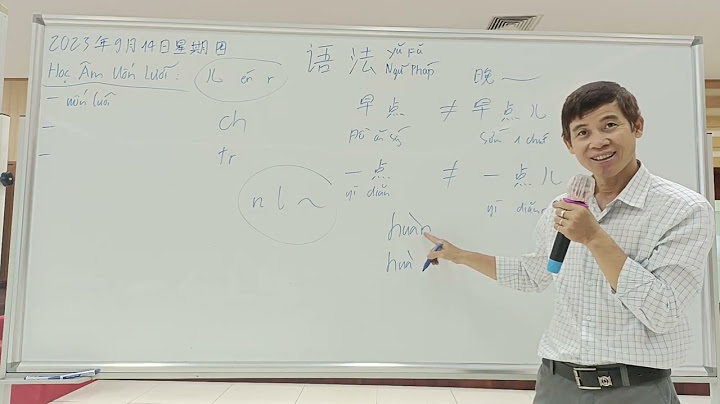 2023年9月14日星期四
Học Âm Uốn Lưỡi :
儿 ér r
— uốn lưỡi
—
—
ch
tr
n l ~
语法 Yǔ Fǎ
Ngữ Pháp
晚 ~
早点 ≠ 早点儿
Đồ ăn sáng Sớm 1 chút
一点 ≠ 一点儿
yì diǎn yì diǎnr
huàn
huà